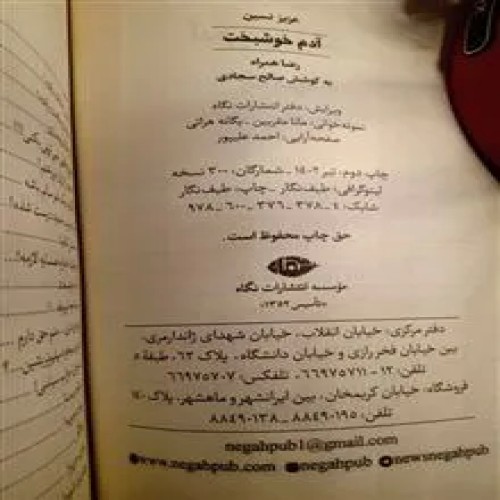 عزیز نسین
آدم خوشبخت
رضا همراه
به کوشش صالح سجادی
ویرایش: دفتر انتشارات نگاه
نمونه‌خوانی: مانا مقربین - یگانه هراتی
صفحه‌آرایی: احمد علیپور
چاپ دوم: تیر ۱۴۰۲ - شمارگان: ۳۰۰ نسخه
لیتوگرافی: طیف‌نگار - چاپ: طیف‌نگار
شابک: ۴ - ۳۷۸ - ۳۷۶ - ۶۰۰ - ۹۷۸
حق چاپ محفوظ است.
مؤسسه انتشارات نگاه
«تأسیس ۱۳۵۲»
دفتر مرکزی: خیابان انقلاب، خیابان شهدای ژاندارمری،
بین خیابان فخر رازی و خیابان دانشگاه، پلاک ۶۳، طبقه ۵
تلفن: ۱۲ - ۶۶۹۷۵۷۱۱، تلفکس: ۶۶۹۷۵۷۰۷
فروشگاه: خیابان کریمخان، بین ایرانشهر و ماهشهر، پلاک ۱۴۰
تلفن: ۸۸۴۹۰۱۹۵ - ۸۸۴۹۰۱۳۸
negahpub1@gmail.com
www.negahpub.com negahpub newsnegahpub